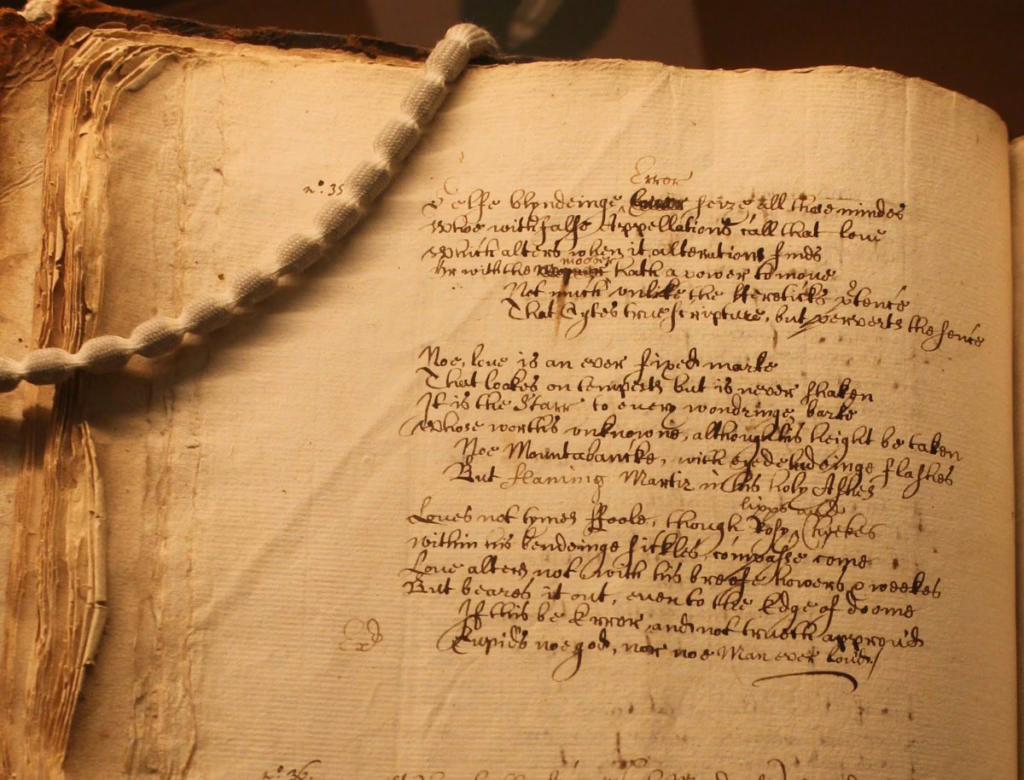 n°. 35
Error
Selfe blyndeinge ^ Error seize all those mindes
Whoe with false Appellations call that love
Which alters when it alterations finds
moover
Or with the hath a power to move
Not much unlike the Hereticks ptence
That Cytes true scripture, but perverts the sence
Noe, love is an ever fixed marke
That lookes on tempests but is never shaken
It is the Starr to every wondringe barke
Whose worths unknowne, although his height be taken
Noe Mountabancke, with eyedeludeinge flashes
But flaming Martir in his holy Ashes
lipps and
Loves not tymes Foole, though Rosy ^ Cheekes
within his bendeinge sickles compasse come
Love alters not with his breife howers & weekes
But beares it out, even to the Edge of doome
If this be Error, and not trueth approv'd
Cupids noe god, nor noe Man ever lov'd
n°. 36.